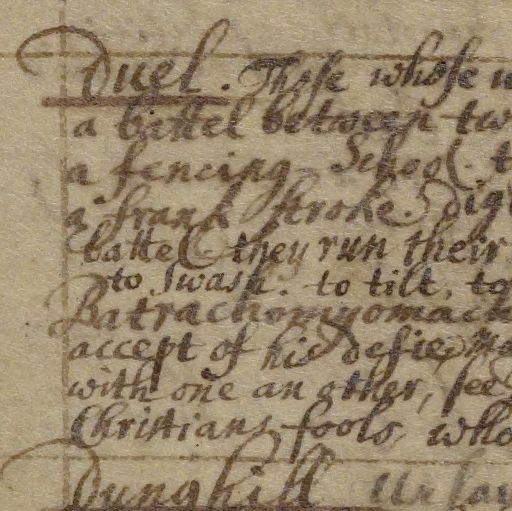 Duel. Those whose w
a battel between tw
a fencing School. t
a frank stroke. dig
battel. they run their
to swash. to tilt. to
Batrachomyomach
accept of his defie,
with one an other, see
Christians fools, who
Dunghill